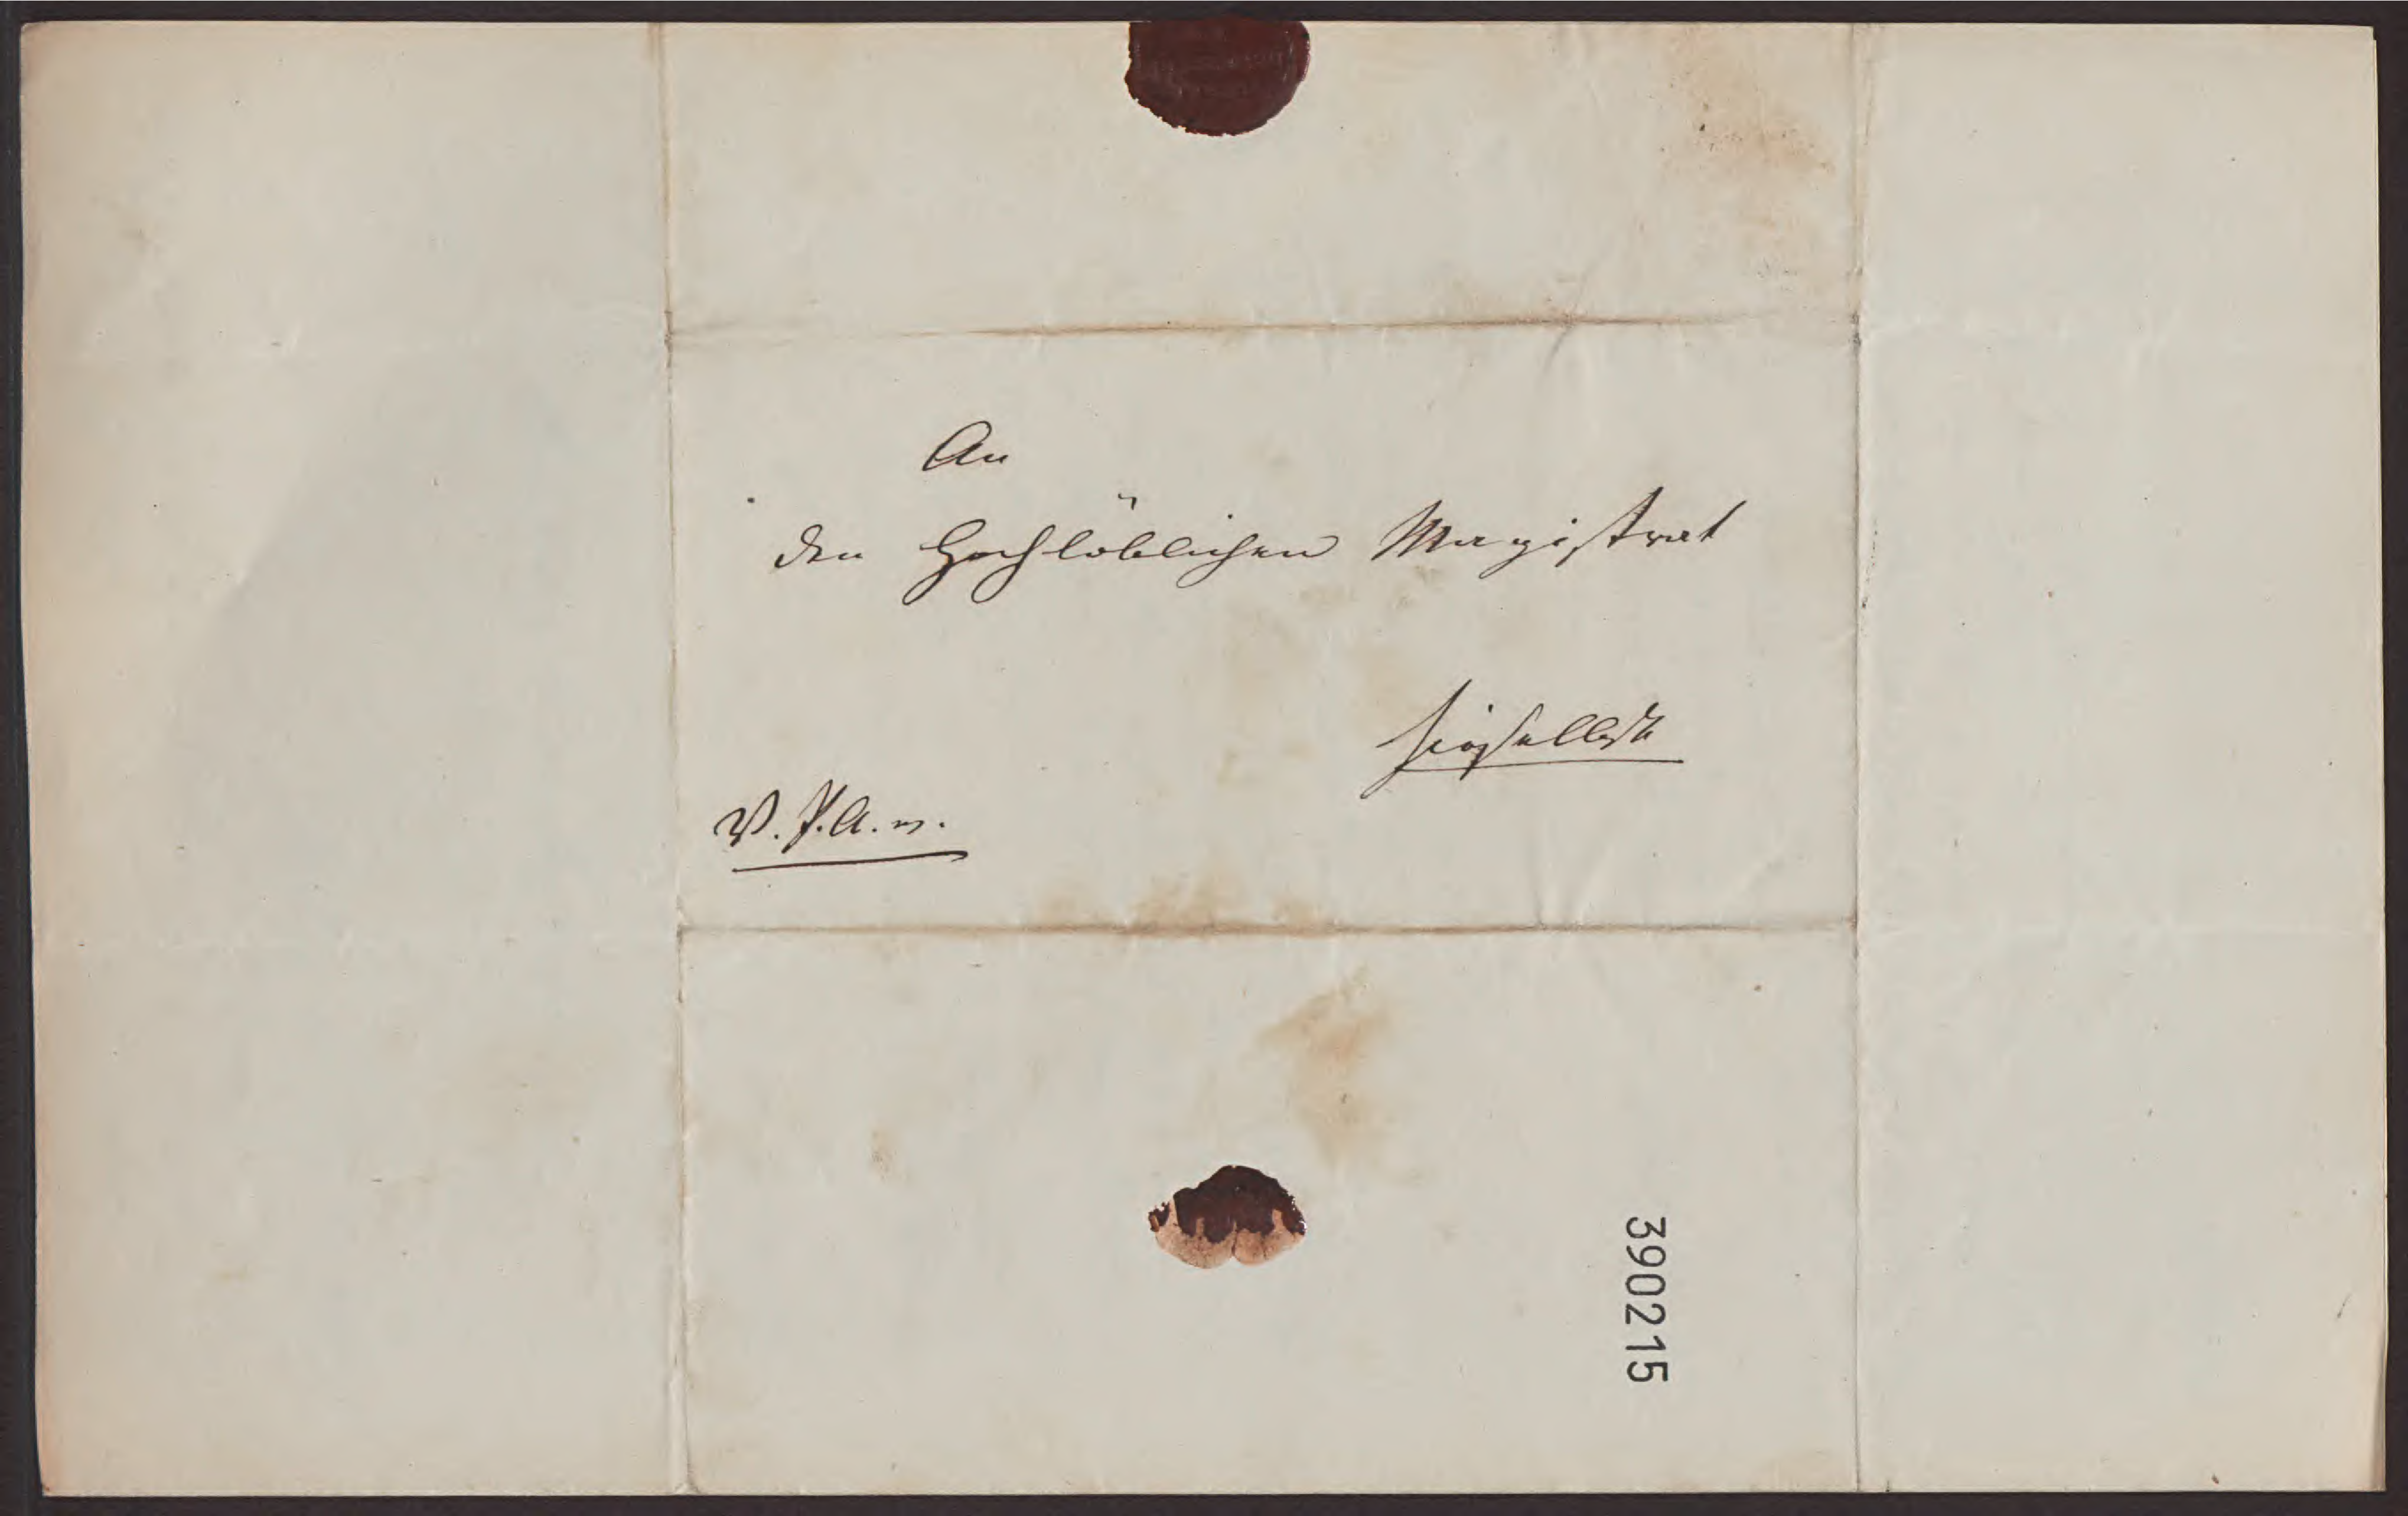 An
den Hochlöblichen Magistrat
hieselbst
V. P. A. w.
390215